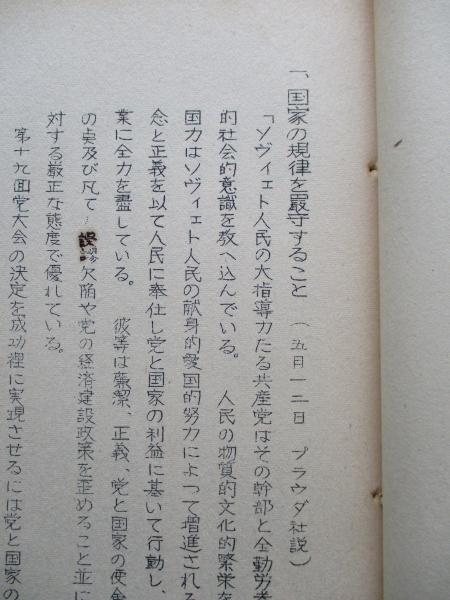 一、国家の規律を嚴守すること （五月一二日 プラウダ社説）
「ソヴィエト人民の大指導力たる共産党はその幹部と全勤労者
的社会的意識を教へ込んでいる。 人民の物質的文化的繁栄を
国力はソヴィエト人民の献身的愛国的努力によつて増進される
念と正義を以て人民に奉仕し党と国家の利益に基いて行動し、
業に全力を盡している。 彼等は廉潔、正義、党と国家の使命
の点及び凡て 誤謬欠陥や党の経済建設政策を歪めること並に
対する厳正な態度で優れている。
第十九回党大会の決定を成功裡に実現させるには党と国家の